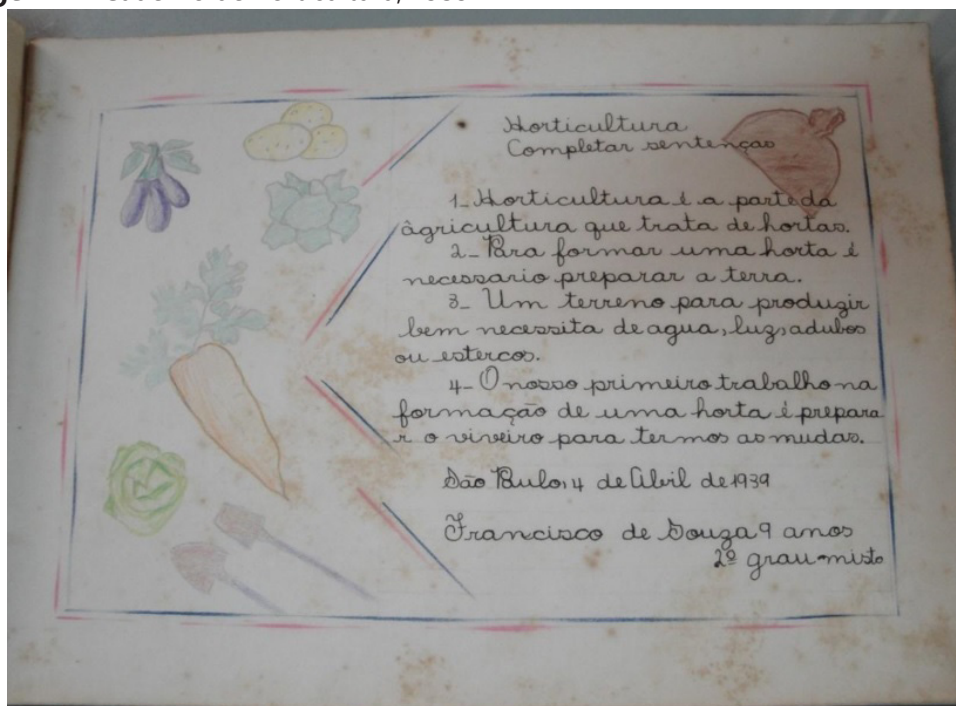 Horticultura
Completar sentenças
1_ Horticultura é a parte da
àgricultura que trata de hortas.
2_ Para formar uma horta é
necessario preparar a terra.
3_ Um terreno para produzir
bem necessita de agua, luz, adubos
ou estercos.
4_ O nosso primeiro trabalho na
formação de uma horta é prepara
r o viveiro para termos as mudas.
São Paulo, 4 de Abril de 1939
Francisco de Souza 9 anos
2º grau-misto